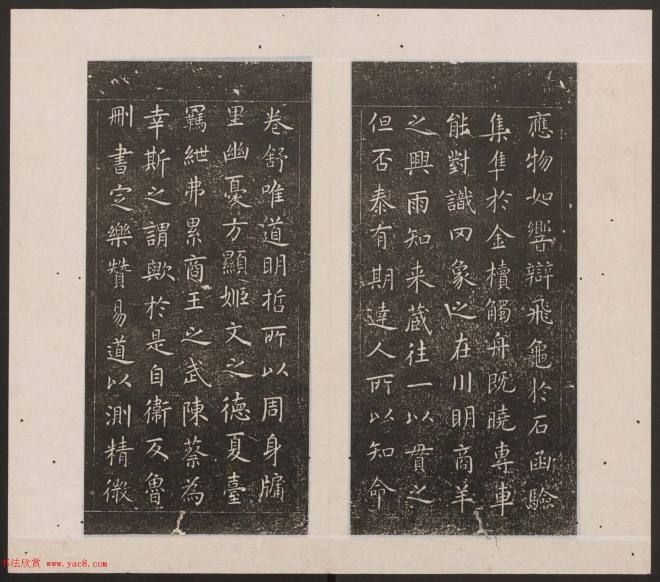 應物如響辯飛龜於石函驗
集隼於金櫝觸舟既曉專車
能對識罔象之在川明商羊
之興雨知来蔵往一以貫之
但否泰有期達人所以知命
卷舒唯道明哲所以周身牖
里幽憂方顯姬文之德夏臺
羈紲弗累商王之武陳蔡為
幸斯之謂歟於是自衛反魯
刪書定樂贊易道以測精微
书法欣赏 www.yac8.com